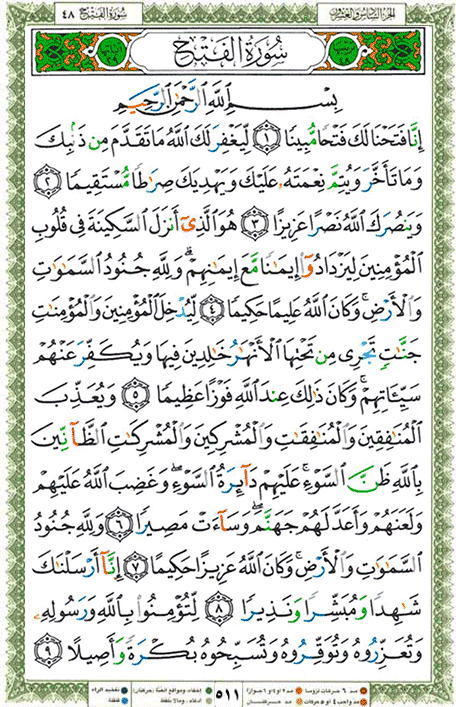 سُورَةُ الفَتْحِ ٤٨
الجزء السادس والعشرون
سُورَةُ الفَتْحِ
بِسْمِ اللَّهِ الرَّحْمَٰنِ الرَّحِيمِ
إِنَّا فَتَحْنَا لَكَ فَتْحًا مُّبِينًا ١ لِّيَغْفِرَ لَكَ اللَّهُ مَا تَقَدَّمَ مِن ذَنۢبِكَ
وَمَا تَأَخَّرَ وَيُتِمَّ نِعْمَتَهُۥ عَلَيْكَ وَيَهْدِيَكَ صِرَٰطًا مُّسْتَقِيمًا ٢
وَيَنصُرَكَ اللَّهُ نَصْرًا عَزِيزًا ٣ هُوَ الَّذِىٓ أَنزَلَ السَّكِينَةَ فِى قُلُوبِ
الْمُؤْمِنِينَ لِيَزْدَادُوٓا۟ إِيمَٰنًا مَّعَ إِيمَٰنِهِمْ ۗ وَلِلَّهِ جُنُودُ السَّمَٰوَٰتِ
وَالْأَرْضِ ۚ وَكَانَ اللَّهُ عَلِيمًا حَكِيمًا ٤ لِّيُدْخِلَ الْمُؤْمِنِينَ وَالْمُؤْمِنَٰتِ
جَنَّٰتٍ تَجْرِى مِن تَحْتِهَا الْأَنْهَٰرُ خَٰلِدِينَ فِيهَا وَيُكَفِّرَ عَنْهُمْ
سَيِّـَٔاتِهِمْ ۚ وَكَانَ ذَٰلِكَ عِندَ اللَّهِ فَوْزًا عَظِيمًا ٥ وَيُعَذِّبَ
الْمُنَٰفِقِينَ وَالْمُنَٰفِقَٰتِ وَالْمُشْرِكِينَ وَالْمُشْرِكَٰتِ الظَّآنِّينَ
بِاللَّهِ ظَنَّ السَّوْءِ ۚ عَلَيْهِمْ دَآئِرَةُ السَّوْءِ ۖ وَغَضِبَ اللَّهُ عَلَيْهِمْ
وَلَعَنَهُمْ وَأَعَدَّ لَهُمْ جَهَنَّمَ ۖ وَسَآءَتْ مَصِيرًا ٦ وَلِلَّهِ جُنُودُ
السَّمَٰوَٰتِ وَالْأَرْضِ ۚ وَكَانَ اللَّهُ عَزِيزًا حَكِيمًا ٧ إِنَّآ أَرْسَلْنَٰكَ
شَٰهِدًا وَمُبَشِّرًا وَنَذِيرًا ٨ لِّتُؤْمِنُوا۟ بِاللَّهِ وَرَسُولِهِۦ
وَتُعَزِّرُوهُ وَتُوَقِّرُوهُ وَتُسَبِّحُوهُ بُكْرَةً وَأَصِيلًا ٩
٥١١